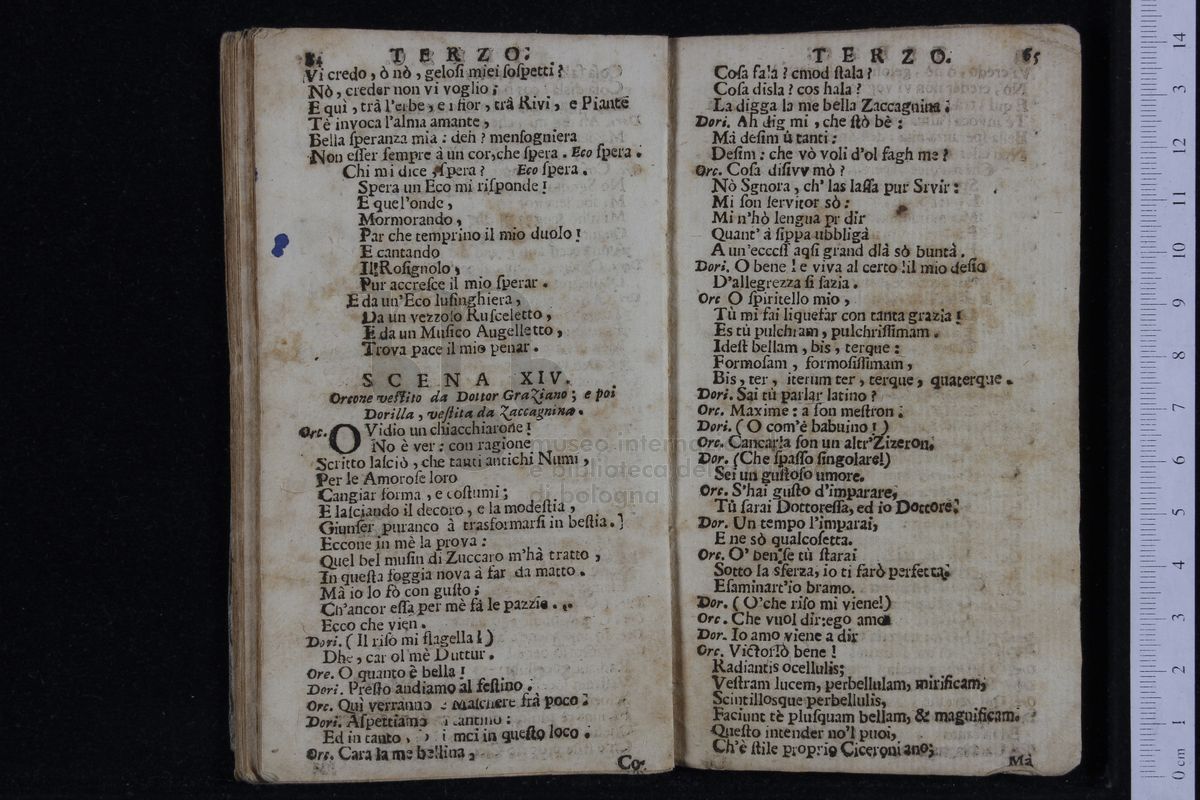 84 TERZO.
Vi credo, ò nò, gelosi miei sospetti?
Nò, creder non vi voglio;
E quì, trà l'erbe, e i fior, trà Rivi, e Piante
Tè invoca l'alma amante,
Bella speranza mia: deh? mensogniera
Non esser sempre à un cor, che spera. Eco spera.
Chi mi dice spera? Eco spera.
Spera un Eco mi risponde!
E quel'onde,
Mormorando,
Par che temprino il mio duolo!
E cantando
Il Rosignolo,
Pur accresce il mio sperar.
E da un'Eco lusinghiera,
Da un vezzoso Rusceletto,
E da un Musico Augelletto,
Trova pace il mio penar.
SCENA XIV.
Orcone vestito da Dottor Graziano; e poi
Dorilla, vestita da Zaccagnina.
Orc. OVidio un chiacchiarone!
No è ver: con ragione
Scritto lasciò, che tanti antichi Numi,
Per le Amorose loro
Cangiar forma, e costumi;
E lasciando il decoro, e la modestia,
Giunser puranco à trasformarsi in bestia.
Eccone in mè la prova:
Quel bel musin di Zuccaro m'hà tratto,
In questa foggia nova à far da matto.
Mà io lo fò con gusto;
Ch'ancor essa per mè fà le pazzie.
Ecco che vien.
Dori. (Il riso mi flagella!)
Dhe, car ol mè Duttur.
Orc. O quanto è bella!
Dori. Presto andiamo al festino.
Orc. Quì verranno Maschere frà poco?
Dori. Aspettiamo cantino:
Ed in tanto, in questo loco.
Orc. Cara la me bellina,
Co-
TERZO. 65
Cosa fala? cmod stala?
Cosa disla? cos hala?
La digga la me bella Zaccagnina.
Dori. Ah dig mi, che stò bè:
Mà desim ù tanti:
Desim: che vò voli d'ol fagh me?
Orc. Cosa disivv mò?
Nò Sgnora, ch' las lassa pur Srvir:
Mi son servitor sò:
Mi n'hò lengua pr dir
Quant' à sippa ubbligà
A un'ecccss aqsì grand dlà sò buntà.
Dori. O bene! e viva al certo! il mio desio
D'allegrezza si sazia.
Orc O spiritello mio,
Tù mi fai liquefar con tanta grazia!
Es tù pulchram, pulchrissimam.
Idest bellam, bis, terque:
Formosam, formosissimam,
Bis, ter, iterum ter, terque, quaterque.
Dori. Sai tù parlar latino?
Orc. Maxime: a son mestron.
Dori. (O com'è babuino!)
Orc. Cancar!a son un altr'Zizeron.
Dor. (Che spasso singolare!)
Sei un gustoso umore.
Orc. S'hai gusto d'imparare,
Tù sarai Dottoressa, ed io Dottore.
Dor. Un tempo l'imparai,
E ne sò qualcosetta.
Orc. O' ben; se tù starai
Sotto la sferza, io ti farò perfetta:
Esaminart'io bramo.
Dor. (O'che riso mi viene!)
Orc. Che vuol dir: ego amo
Dor. Io amo viene a dir
Orc. Victoriò bene!
Radiantis ocellulis;
Vestram lucem, perbellulam, mirificam,
Scintillosque perbellulis,
Faciunt tè plusquam bellam, & magnificam.
Questo intender no'l puoi,
Ch'è stile proprio Ciceroniano;
Mà